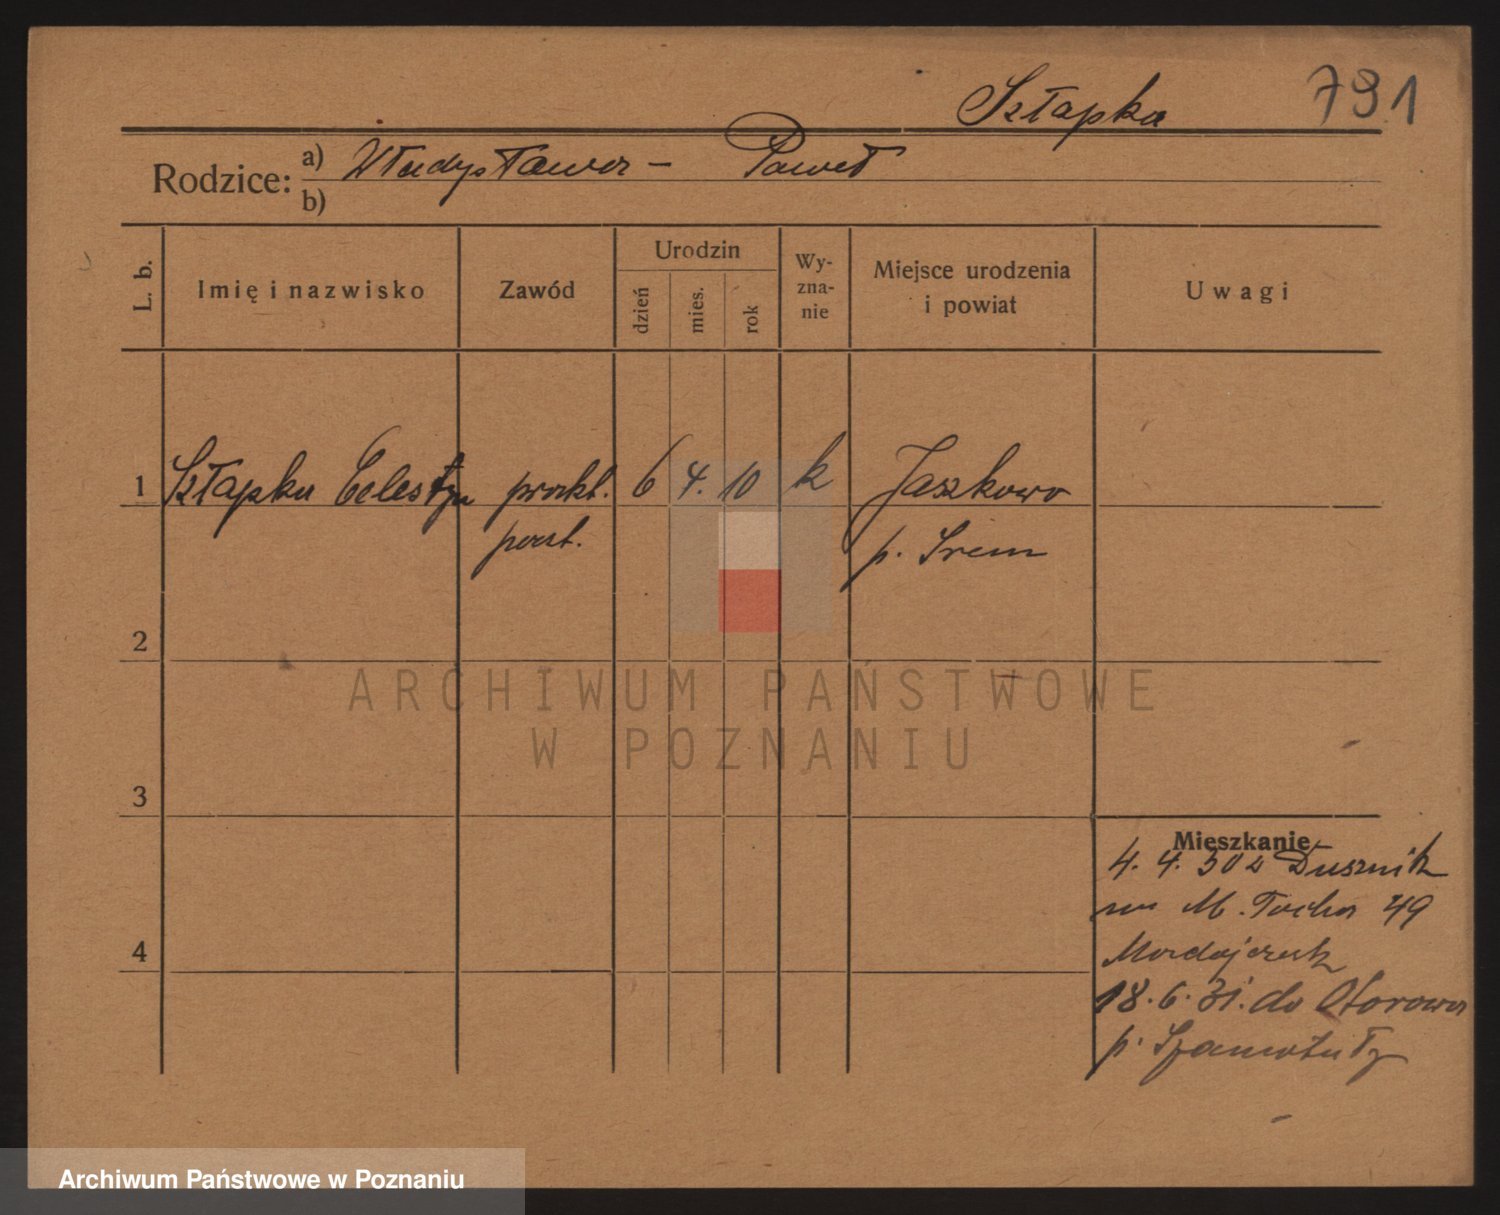 Szłapka 791
Rodzice: a) Władysława - Paweł
b)
L. b. Imię i nazwisko Zawód Urodzin dzień mies. rok Wy-zna-nie Miejsce urodzenia i powiat Uwagi
1 Szłapka Celestyn prakt. 6 4. 10 k Jaszkowo
poczt. p. Śrem
2
3
Mieszkanie
4. 4. 30 z Dusznik
na M. Focha 49
4
18. 6. 31. do Otorowa
p. Szamotuły
ARCHIWUM PAŃSTWOWE
W POZNANIU
Archiwum Państwowe w Poznaniu